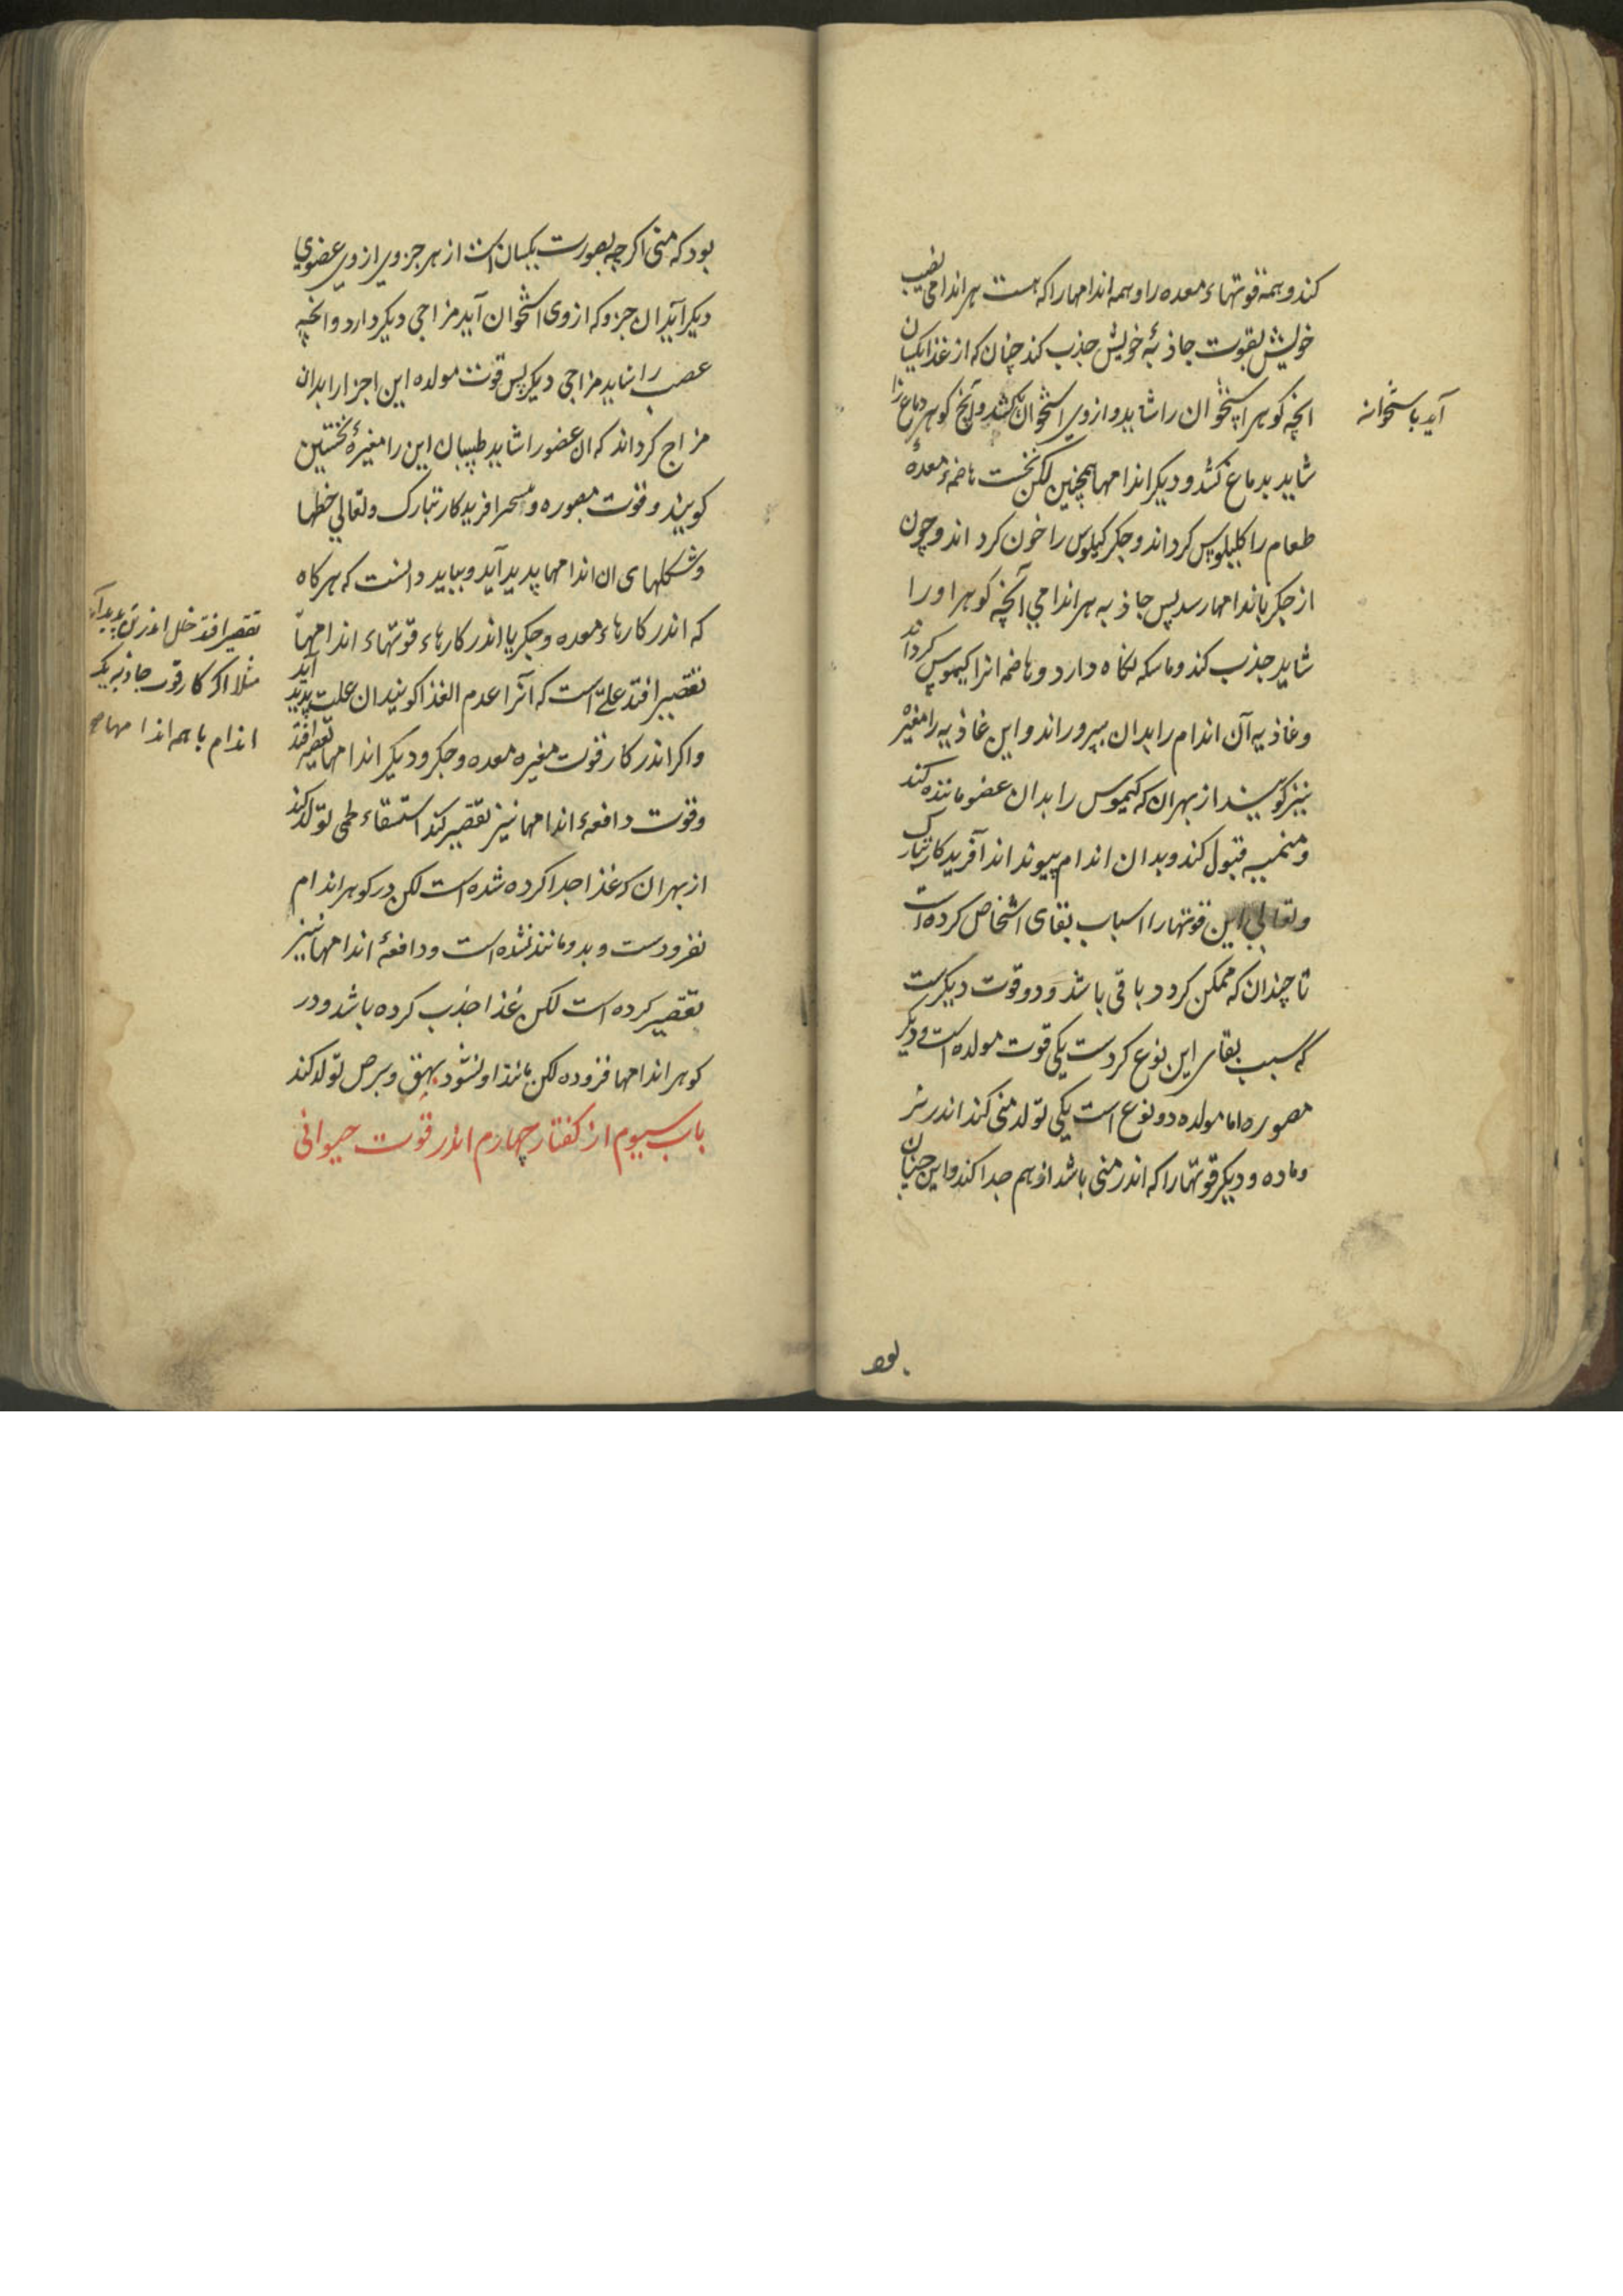 کند و همه قوتهاء معده را و همه اندامها را که هست هر اندامی نصیب
خویش بقوت جاذبهٔ خویش جذب کند چنان که از غذا یکسان
آید باستخوان
انچه کوهر استخوان را شاید و ازوی استخوان کشد و آنچ کوهر دماغ را
شاید بدماغ کشد و دیکر اندامها همچنین لکن نخست هاضمهٔ معده
طعام را کیلوس کرداند و جکر کیلوس را خون کرداند و چون
از جکر باندامها رسد پس جاذبه هر اندامی آنچه کوهر او را
شاید جذب کند و ماسکه نکاه دارد و هاضمه انرا کیموس کرداند
و غاذیه آن اندام را بدان بپروراند و این غاذیه را مغیره
نیز کویند از بهر ان که کیموس را بدان عضو ماننده کند
و منمیه قبول کند و بدان اندام پیونداند آفریدکار تبارک
و تعالی این قوتها را اسباب بقای اشخاص کرده است
تا چندان که ممکن کردد باقی باشد و دو قوت دیکرست
که سبب بقای این نوع کردست یکی قوت مولده است و دیکر
مصوره اما مولده دو نوع است یکی تولد منی کند اندر نر
و ماده و دیکر قوتها را که اندر منی باشد از هم جدا کند و این چنان
بود
بود که منی اکرچه بصورت یکسان است از هر جزوی ازوی عضوی
دیکر آید ان جزو که ازوی استخوان آید مزاجی دیکر دارد و انچه
عصب را شاید مزاجی دیکر پس قوت مولده این اجزا را بدان
مزاج کرداند که ان عضو را شاید طبیبان این را مغیرهٔ نخستین
کویند و قوت مصوره و مسخر افریدکار تبارک و تعالی خطها
و شکلهای ان اندامها پدید آید و بباید دانست که هر کاه
که اندر کارهاء معده و جکر یا اندر کارهاء قوتهاء اندامها
تقصیر افتد خلل اندر تن پدید آید
مثلا اکر کار قوت جاذبه یک
اندام یا همه اندامها
تقصیر افتد علتی است که آنرا عدم الغذا کویند ان علت پدید آید
و اکر اندر کار قوت مغیره معده و جکر و دیکر اندامها تقصیر افتد
و قوت دافعهٔ اندامها نیز تقصیر کند استسقاء لحمی تولد کند
از بهر ان که غذا جدا کرده شده است لکن در کوهر اندام
نفزودست و بدو مانند نشده است و دافعهٔ اندامها نیز
تقصیر کرده است لکن غذا جذب کرده باشد و در
کوهر اندامها فزوده لکن مانند او نشود بهق و برص تولد کند
باب سیوم از کفتار چهارم اندر قوت حیوانی